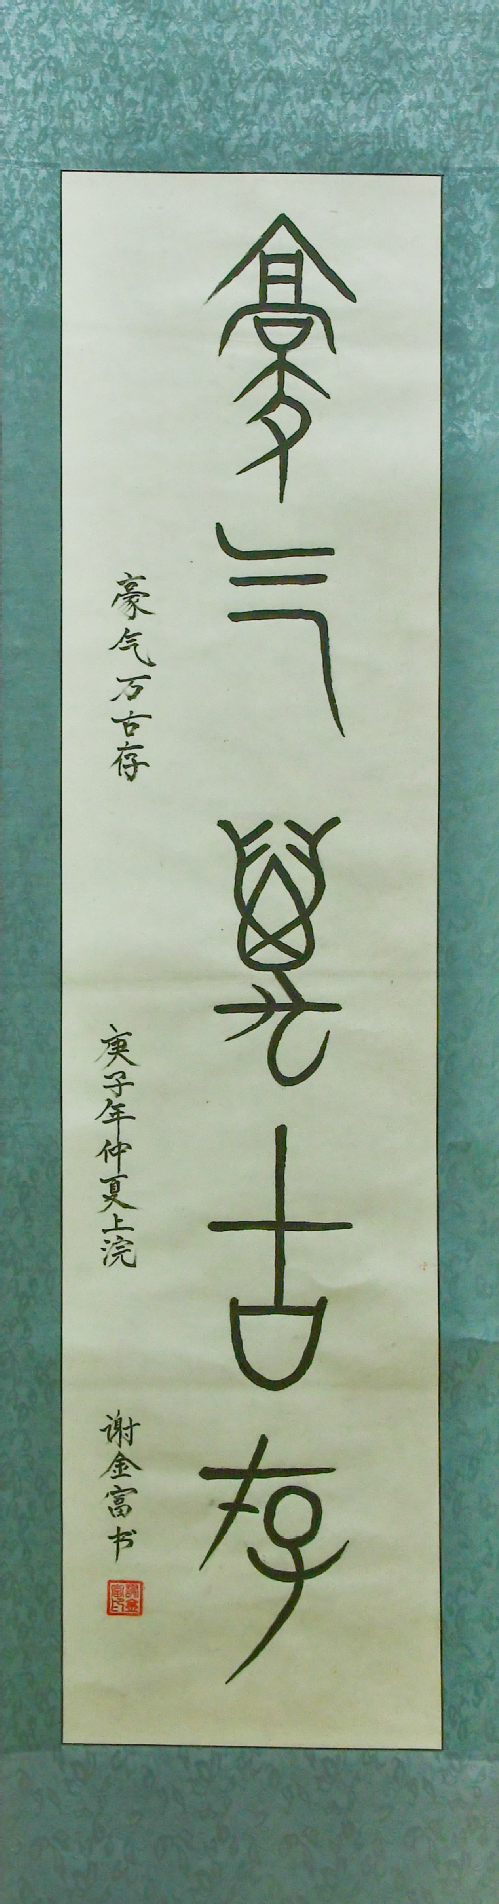 豪气萬古存
豪气万古存
庚子年仲夏上浣
谢金富书